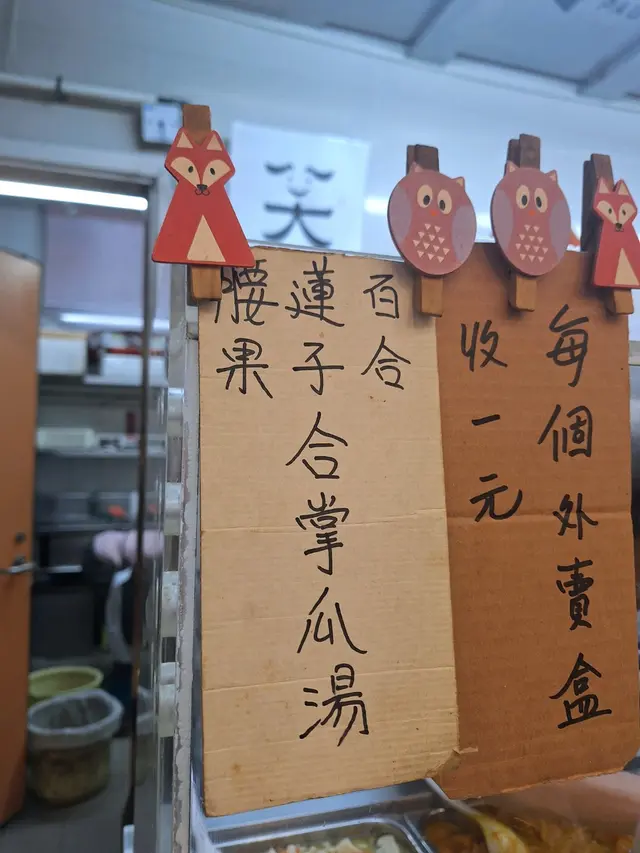 每個外賣盒
收一元
百合
蓮子合掌瓜湯
腰果
笑